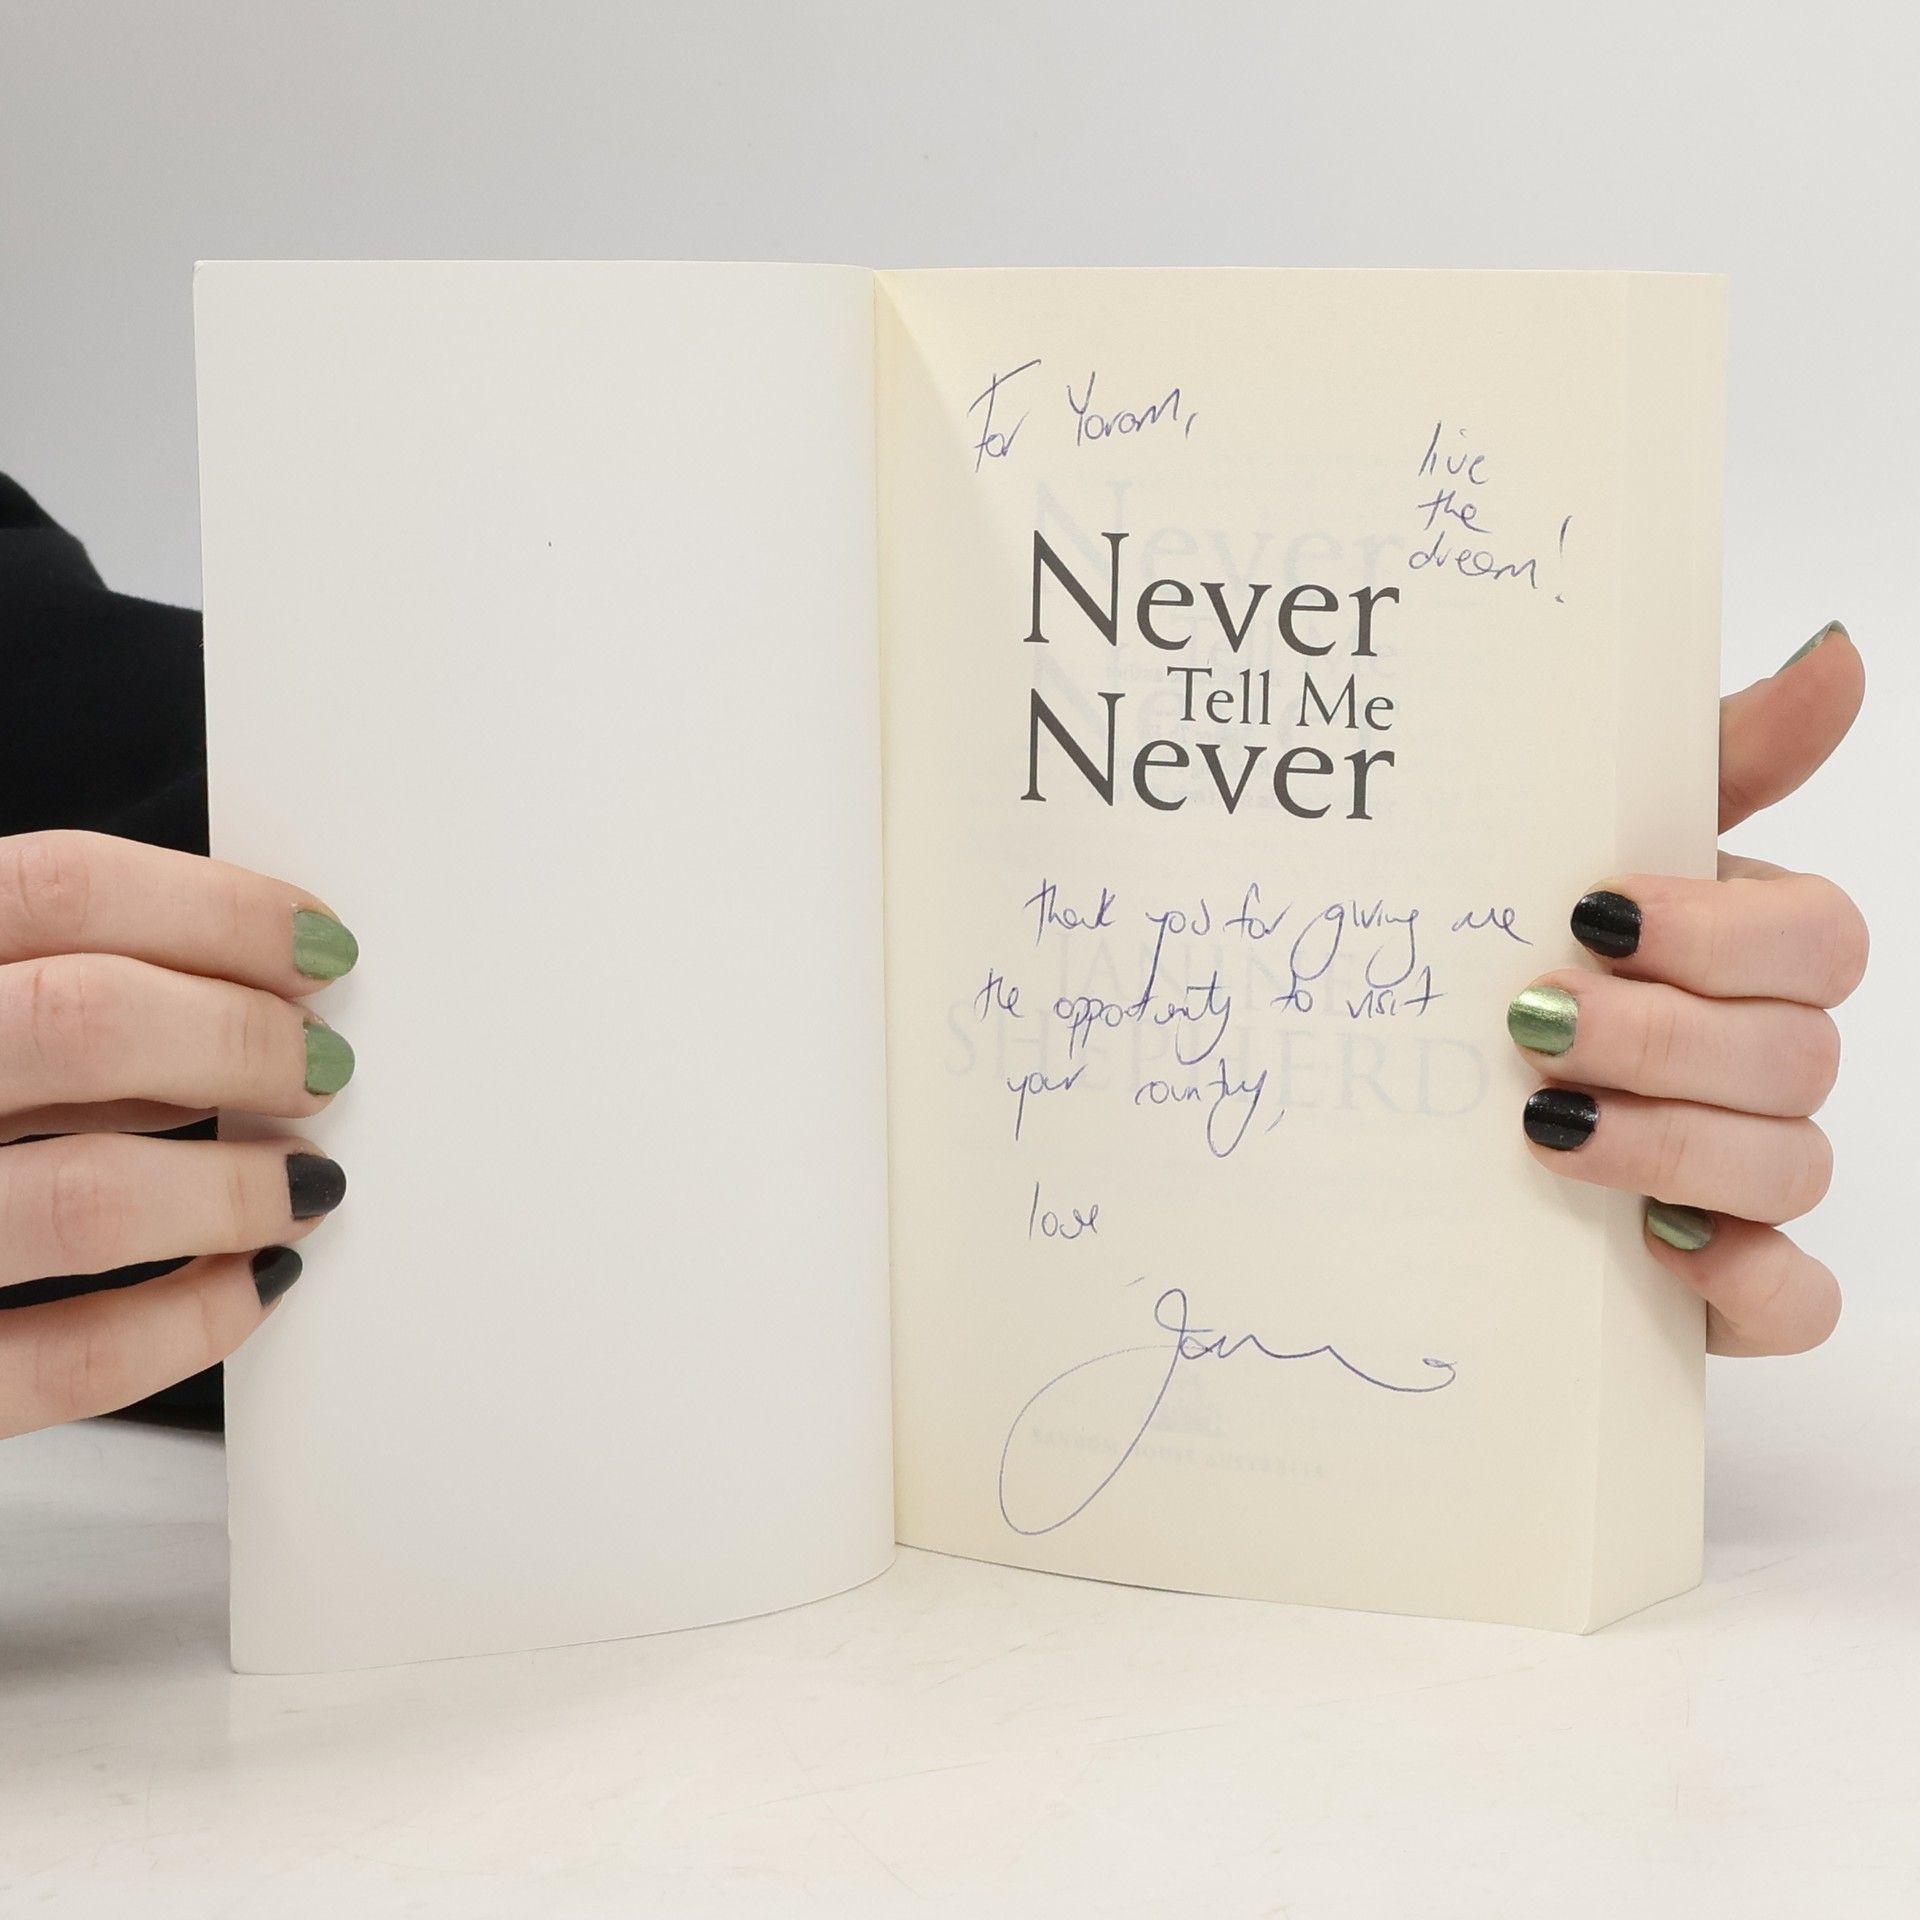 For Yoram,
live
the
dream!
Never
Tell Me
Never
thank you for giving me
the opportunity to visit
your country,
love
Janine
JANINE
SHEPHERD